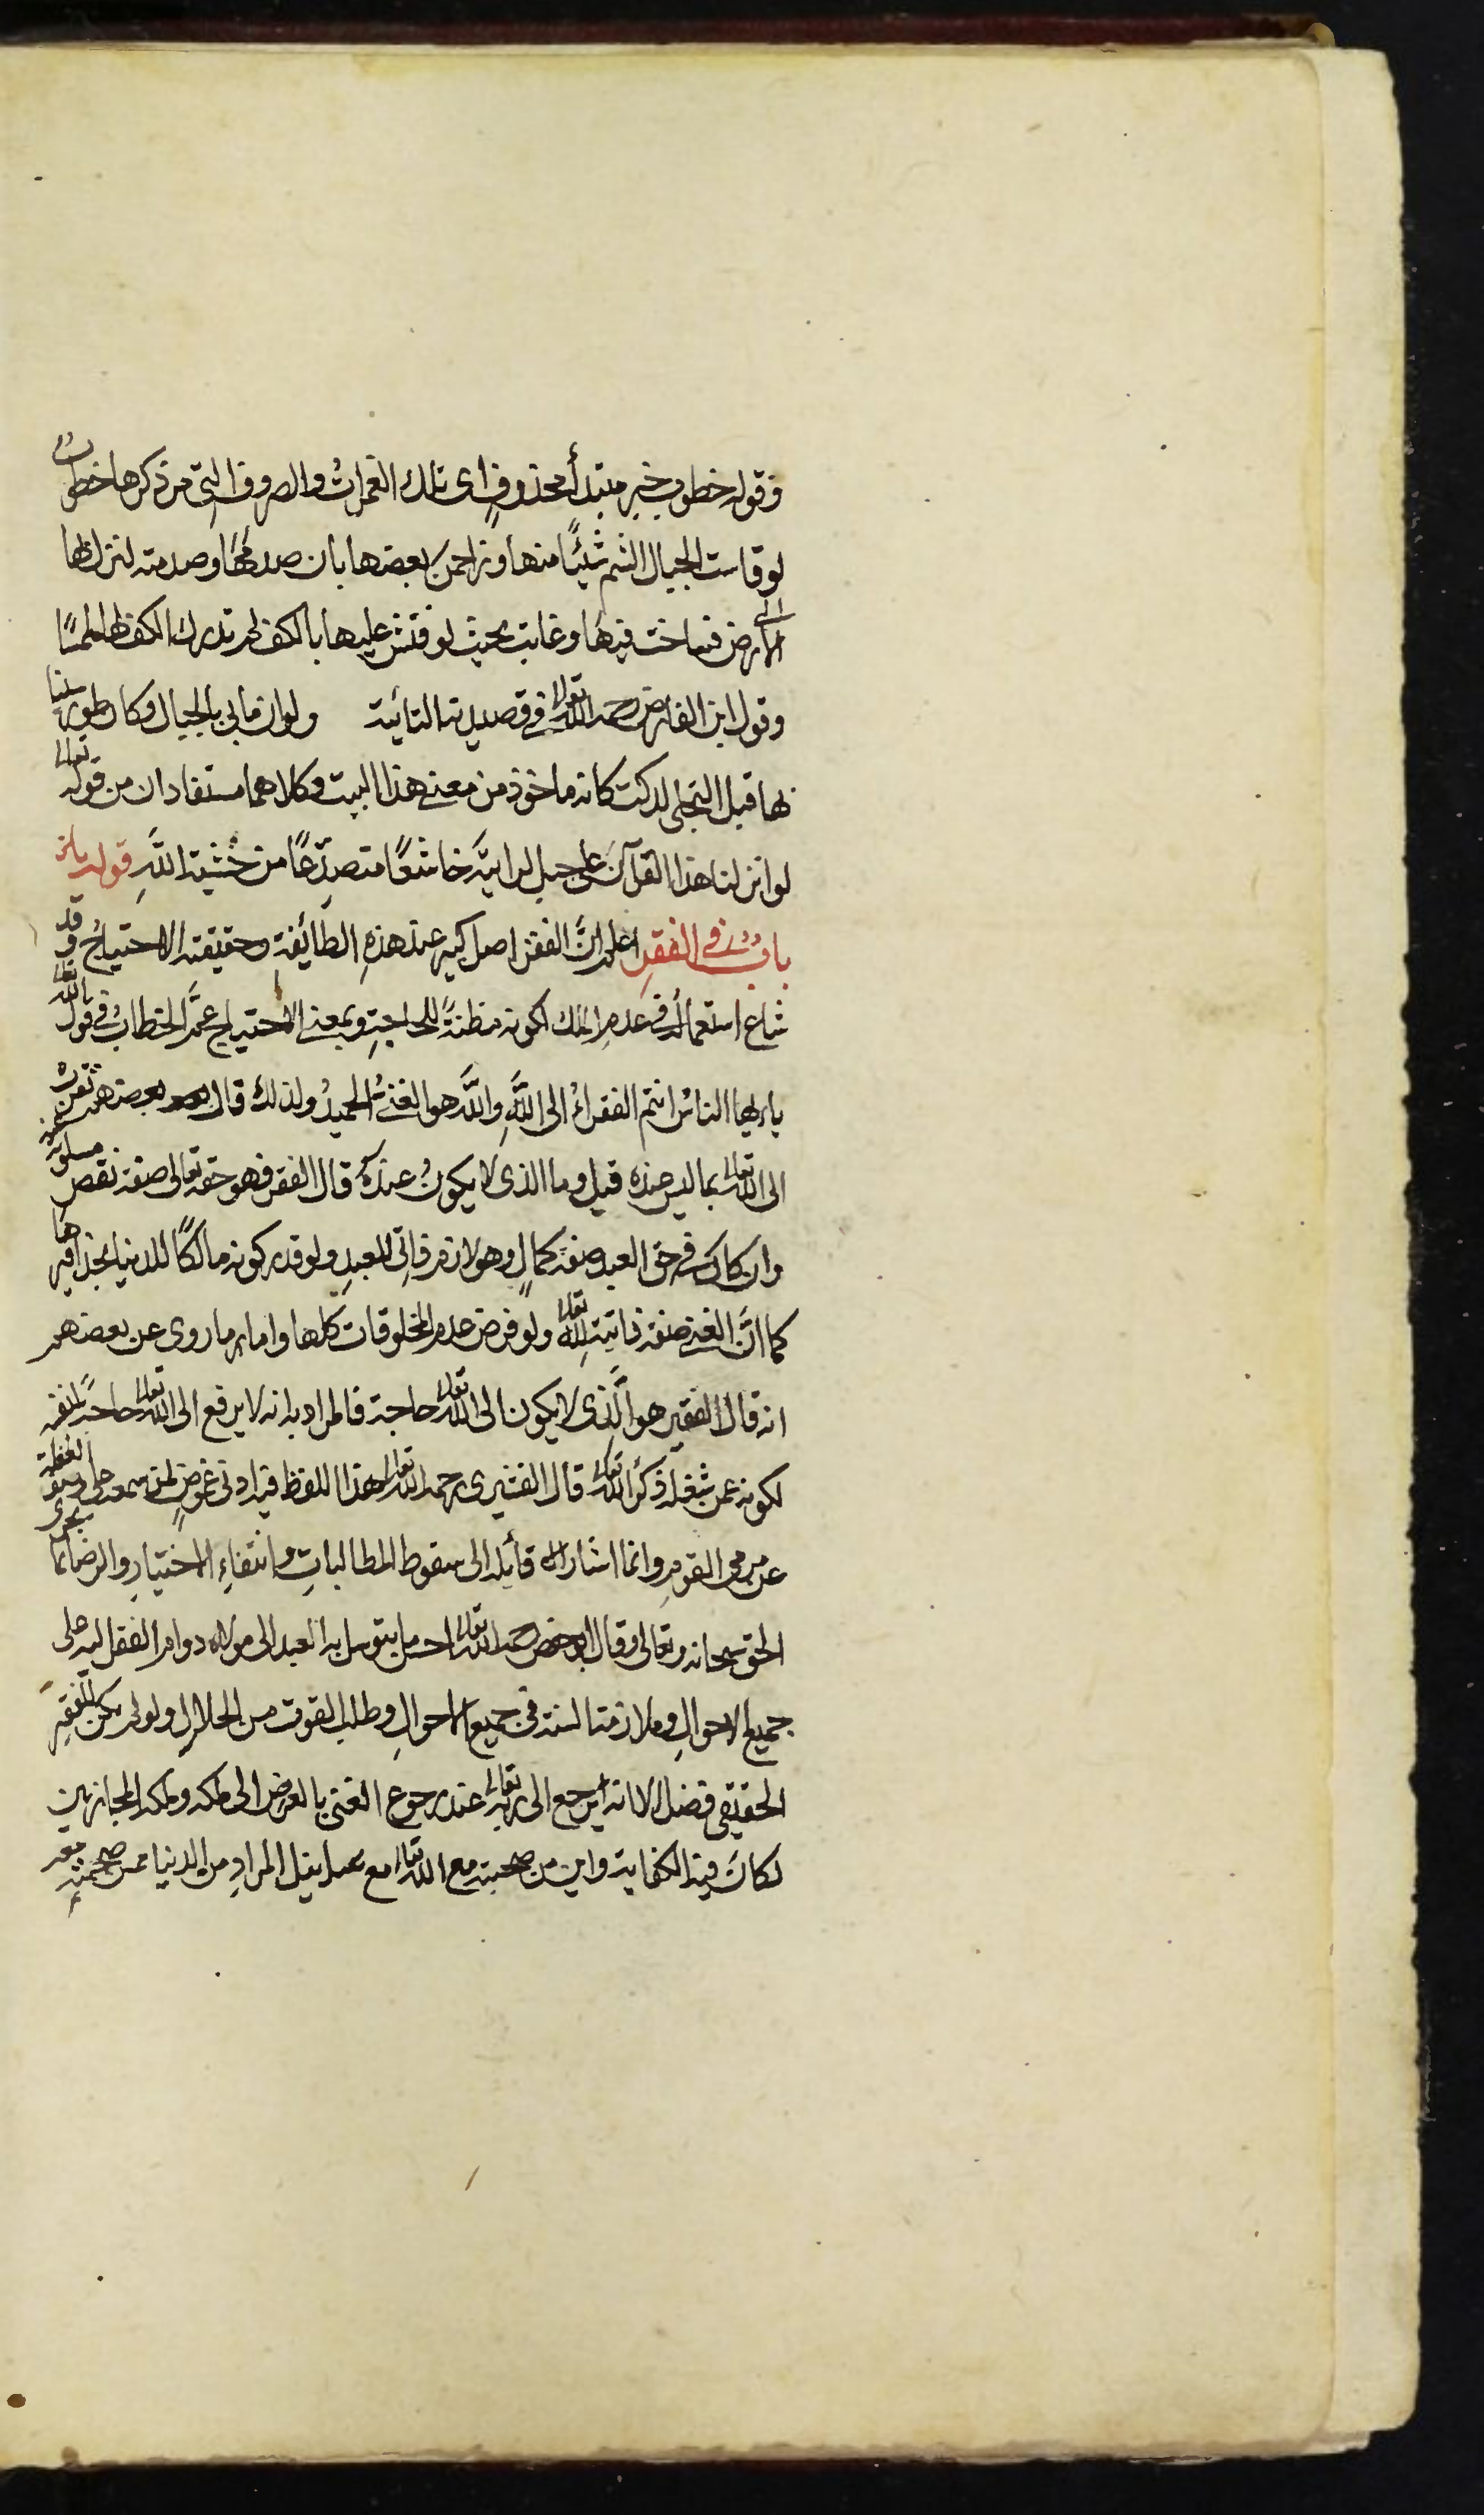 وقوله خطوب خبر مبتدأ محذوفٍ اى تلك الغمراتُ والصروف التى مرّ ذكرها خطوبٌ
لو قاست الجبال الشم شيئًا منها وزاحمن بعضها بان صدمها وصدمته لنزل بها
الى الارض فساخت فيها وغابت بحيث لو فتش عليها بالكف لم تدرك الكف لها لمسًا
وقول ابن الفارض رحمه الله تعالى فى قصيدته التائية ولو ان ما بى بالجبال وكان طور سينا
بها قبل التجلى لدكت كانه ماخوذ من معنى هذا البيت وكلاهما مستفادان من قوله تعالى
لو انزلنا هذا القرآن على جبل لرايتَه خاشعًا متصدّعًا من خشيةِ اللَّهِ قوله
بابٌ فى الفقرِ اعلم انَّ الفقر اصل كبير عند هذهِ الطائفةِ وحقيقته الاحتياجُ وقد
شاع استعماله فى عدمِ الملك لكونه مظنةً للحاجةِ وبمعنى الاحتياج عمَّ الخطابُ فى قول الله تعالى
يا ايها الناسُ انتم الفقراءُ الى اللَّهِ واللَّه هو الغنىُّ الحميدُ ولذلك قال بعضهم تقرب
الى الله تعالى بما ليس عنده قيل وما الذى لا يكونُ عندَهُ قال الفقر فهو حقه تعالى صفة نقص مسلوبة عنه
وان كان فى حق العبد صفة كمالٍ وهو لازم ذاتى للعبدِ ولو قدر كونه مالكًا للدنيا بحذافيرها
كما انَّ الغنى صفة ذاتية لله تعالى ولو فرض عدم المخلوقات كلها واما ما روى عن بعضهم
انه قال الفقير هو الَّذى لا يكون الى الله تعالى حاجة فالمراد به انه لا يرفع الى الله تعالى حاجةً لنفسه
لكونه ممن شغله ذكرُ الله تعالى قال القشيرى رحمه الله تعالى هذا اللفظ فيه ادنى غموضٍ لمن سمعه على وصف الغفلة
عن مرمى القومِ وانما اشار به قائله الى سقوط المطالباتِ وانتفاءِ الاختيارِ والرضا بما يجرى
الحق سبحانه وتعالى وقال ابو حفص رحمه الله تعالى احسن ما يتوسل به العبد الى مولاه دوام الفقر اليه على
جميع الاحوالِ وملازمة السنة فى جميع الاحوالِ وطلب القوت من الحلالِ ولو لم يكن للفقيرِ
الحقيقى فضل الا انه يرجع الى ربه تعالى عند رجوع الغنى بالعرض الى ملكه وملكه المجازيين
لكان فيه الكفاية واين من صحبته مع الله تعالى مع عدم نيل المرادِ من الدنيا ممن صحبته معه